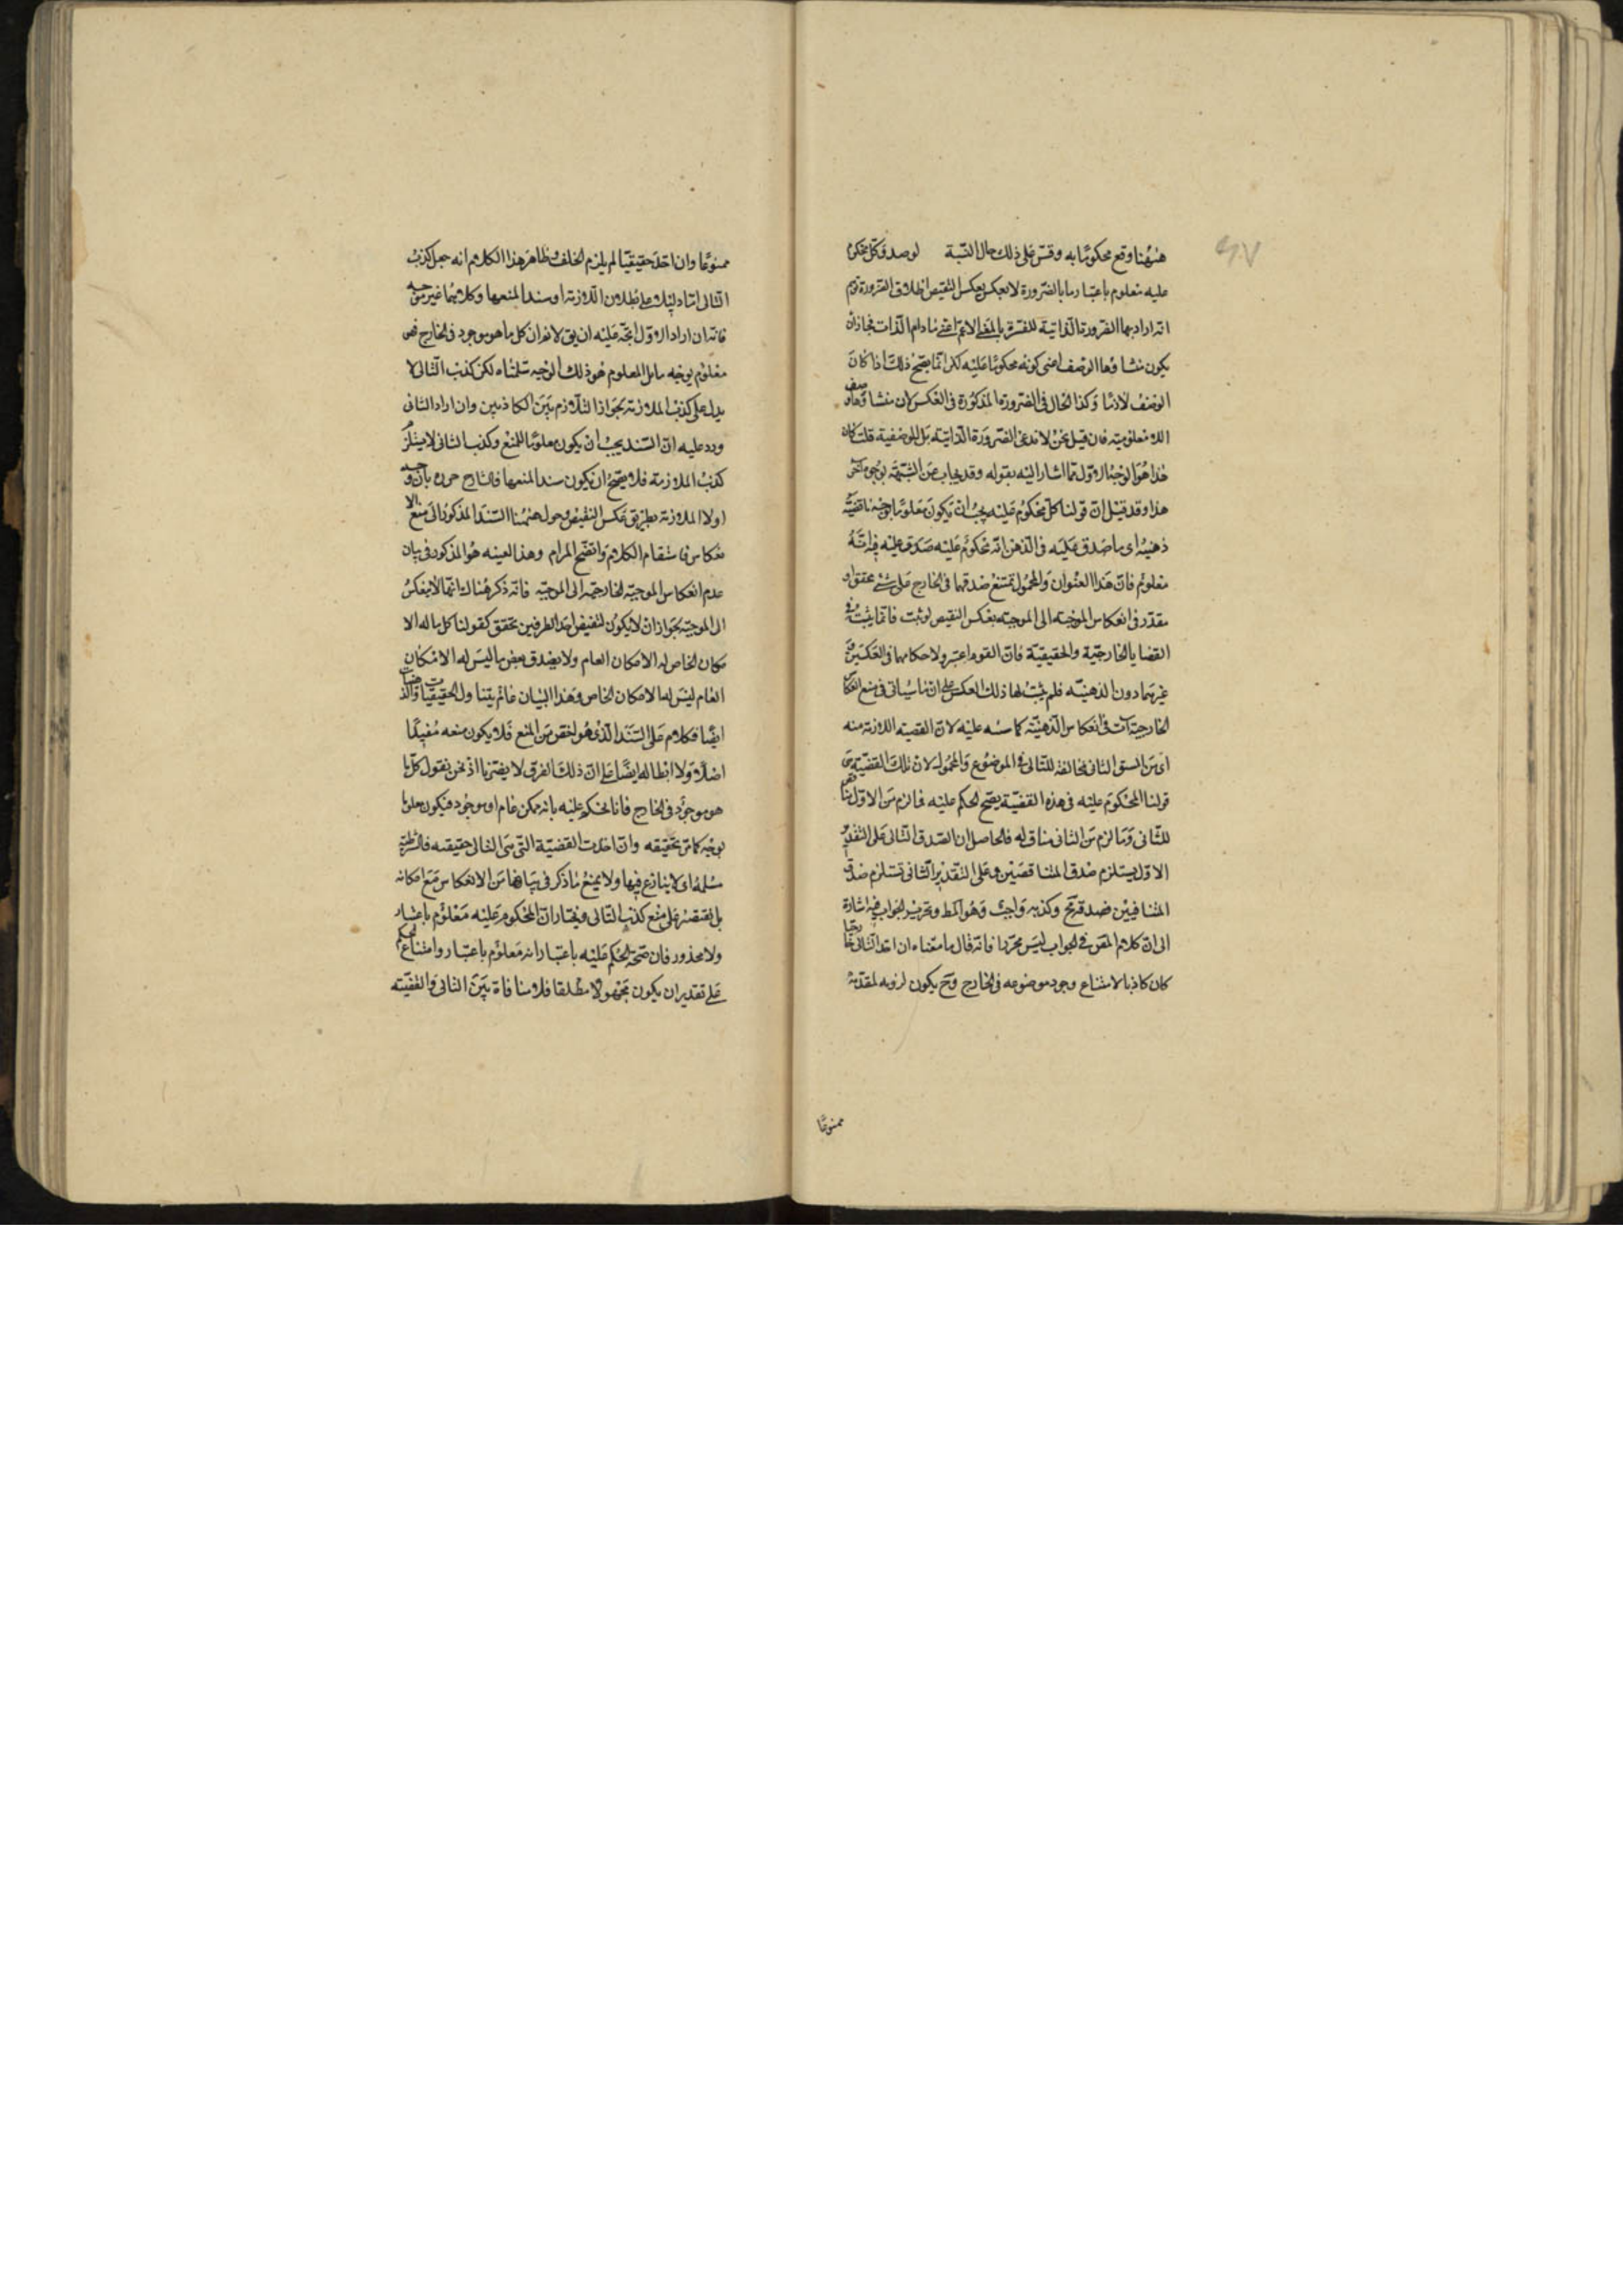 ههنا وقع محكوما به وقس على ذلك حال النسبة لو صدق كل محكوم
عليه معلوم باعتبار ما بالضرورة لانعكس بعكس النقيض اطلاق الضرورة يوهم
انه اراد بها الضرورة الذاتية المفسرة بالمعنى الاعم اعنى ما دام الذات فجاز ان
يكون منشاؤها الوصف اعنى كونه محكوما عليه لكن انما يصح ذلك اذا كان
الوصف لازما وكذا الحال فى الضرورة المذكورة فى العكس لان منشاؤها وصف
اللا معلومية فان قيل نحن لا ندعى الضرورة الذاتية بل الوصفية قلت كان
هذا هو الوجه الاول مما اشار اليه بقوله وقد يجاب عن الشبهة بوجوه اخر
هذا وقد قيل ان قولنا كل محكوم عليه يجب ان يكون معلوما بوجه ما قضية
ذهنية اى ما صدق عليه فى الذهن انه محكوم عليه صدق عليه فيه انه
معلوم فان هذا العنوان والمحمول يمتنع صدقهما فى الخارج على شئ محقق او
مقدر فى انعكاس الموجبة الى الموجبة بعكس النقيض لو ثبت فانما يثبت فى
القضايا الخارجية والحقيقية فان القوم اعتبروا احكامها فى العكسين و
غيرهما دون الذهنية فلم يثبت لها ذلك العكس على ان ما سياتى فى منع انعكاس
الخارجية آت فى انعكاس الذهنية كما سنبه عليه لان القضية اللازمة منه
اى من الشق الثانى مخالفة للتالى فى الموضوع والمحمول لان تلك القضية هى
قولنا المحكوم عليه فى هذه القضية يصح الحكم عليه فما لزم من الاول مناقض
للثانى وما لزم من الثانى مناف له فالحاصل ان الصدق التالى على التقدير
الاول يستلزم صدق المتناقضين وعلى التقدير الثانى تستلزم صدق
المتنافيين فصدقه مح وكذبه واجب وهو المط وتحرير الجواب فيه اشارة
الى ان كلام المص فى الجواب ليس محررا فانه قال ما معناه ان اخذ التالى خارجيا
كان كاذبا لامتناع وجود موضوعه فى الخارج وح يكون لزومه لمقدمة
ممنوعا
ممنوعا وان اخذ حقيقيا لم يلزم الخلف وظاهر هذا الكلام انه جعل كذب
التالى اما دليلا على بطلان اللازمة او سندا لمنعها وكلاهما غير موجه
فانه ان اراد الاول اتجه عليه ان يق لا نم ان كل ما هو موجود فى الخارج فهو
معلوم بوجه ما بل المعلوم هو ذلك الوجه سلمناه لكن كذب التالى لا
يدل على كذب الملازمة بجواز التلازم بين الكاذبين وان اراد الثانى
ورد عليه ان السند يجب ان يكون ملزوما للمنع وكذب التالى لا يستلزم
كذب الملازمة فلا يصح ان يكون سندا لمنعها فالشارح حرره بان وجه
اولا الملازمة بطريق عكس النقيض وحول ههنا السند المذكور الى منع الا
نعكاس فاستقام الكلام واتضح المرام وهذا بعينه هو المذكور فى بيان
عدم انعكاس الموجبة الخارجية الى الموجبة فانه ذكر هناك انها لا ينعكس
الى الموجبة بجواز ان لا يكون لنقيض احد الطرفين تحقق كقولنا كل ما له الا
مكان الخاص له الامكان العام ولا يصدق بعض ما ليس له الامكان
العام ليس له الامكان الخاص وهذا البيان عام يتناول الحقيقيات والذهنيات
ايضا فكلام على السند الذى هو اخص من المنع فلا يكون منعه مفيدا
اصلا ولا ابطاله ايضا على ان ذلك الفرق لا يضرنا اذ نحن نقول كل ما
هو موجود فى الخارج فانا نحكم عليه بانه ممكن عام او موجود فيكون معلوما
بوجه كما مر تحقيقه وان اخذت القضية التى هى التالى حقيقيه فالشرطية
مسلمة اى لا ينازع فيها ولا يمنع ما ذكر فى بيانها من الانعكاس مع امكانه
بل نقتصر على منع كذب التالى ونختار ان المحكوم عليه معلوم باعتبار
ولا محذور فان صحة الحكم عليه باعتبار انه معلوم باعتبار وامتناع الحكم
على تقدير ان يكون مجهولا مطلقا فلا منافاة بين التالى والقضية